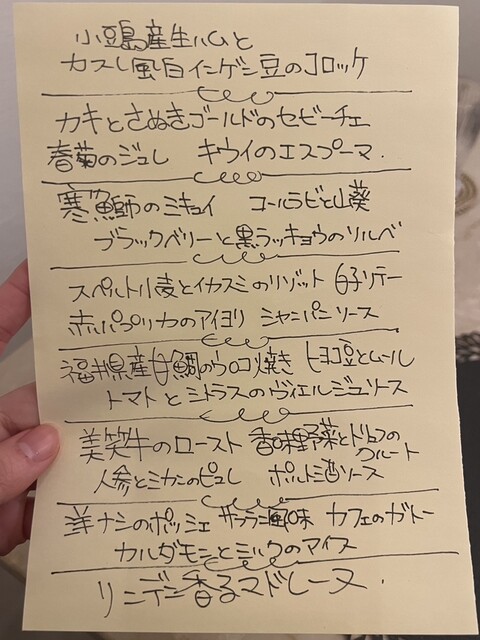 小豆島産生ハムと
カスレ風白インゲン豆のコロッケ
カキとさぬきゴールドのセビーチェ
春菊のジュレ キウイのエスプーマ.
寒鰤のミキュイ コールラビと山葵
ブラックベリーと黒ラッキョウのソルベ
スペルト小麦とイカスミのリゾット 白子ソテー
赤パプリカのアイヨリ シャンパンソース
福井県産甘鯛のウロコ焼き ヒヨコ豆とムール
トマトとシトラスのヴィエルジュソース
美笑牛のロースト 香味野菜とトリュフの
クルート
人参とミカンのピュレ ポルト酒ソース
洋ナシのポッシェ サフラン風味 カフェのガトー
カルダモンとミルクのアイス
リンデン香るマドレーヌ.